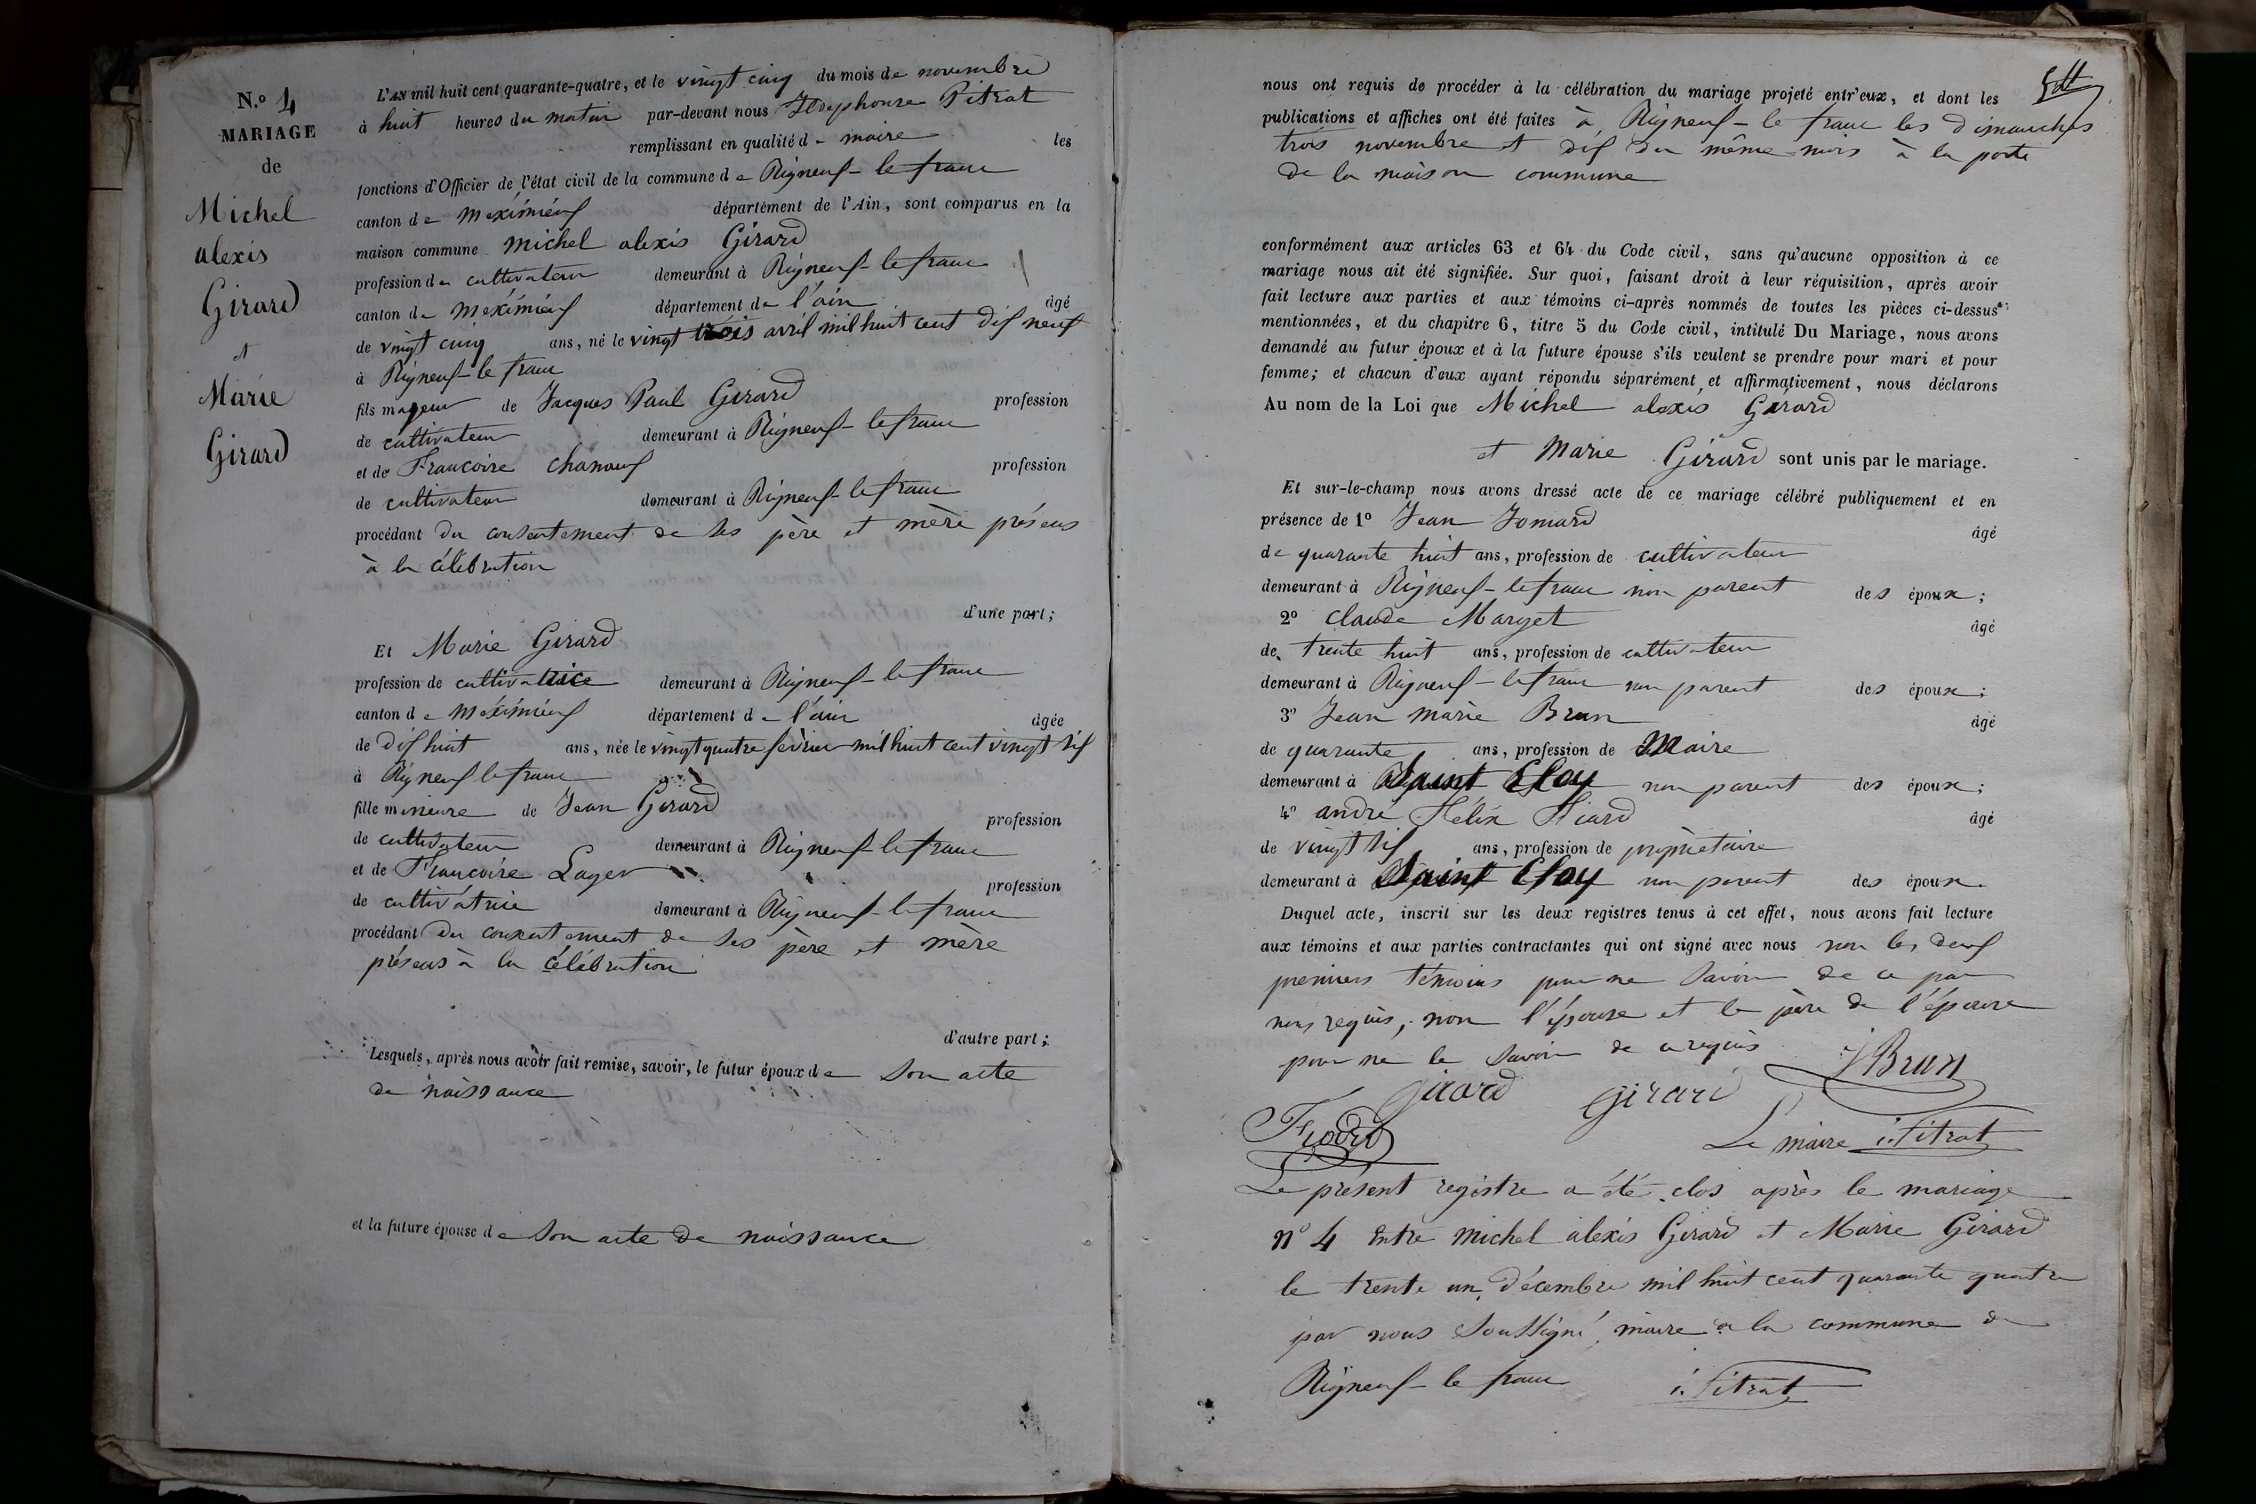 N.o 4
MARIAGE
de
Michel
alexis
Girard
et
Marie
Girard
L'AN mil huit cent quarante-quatre, et le vingt cinq du mois de novembre
à huit heures du matin par-devant nous Ildephonse Pitrat
remplissant en qualité de maire les
fonctions d'Officier de l'état civil de la commune de Rigneux-le franc
canton de meximieux département de l'Ain, sont comparus en la
maison commune michel alexis Girard
profession de cultivateur demeurant à Rigneux-le franc
canton de meximieux département de l'ain âgé
de vingt cinq ans, né le vingt trois avril mil huit cent dix neuf
à Rigneux-le franc
fils majeur de Jacques Paul Girard profession
de cultivateur demeurant à Rigneux-le franc
et de Francoise chanoux profession
de cultivateur demeurant à Rigneux-le franc
procédant du consentement de ses père et mère présens
à la célébration
d'une part;
Et Marie Girard
profession de cultivatrice demeurant à Rigneux-le franc
canton de meximieux département de l'ain âgée
de dix huit ans, née le vingt quatre février mil huit cent vingt six
à Rigneux le franc
fille mineure de Jean Girard profession
de cultivateur demeurant à Rigneux-le franc
et de Francoise Lager profession
de cultivatrice demeurant à Rigneux-le franc
procédant du consentement de ses père et mère
présens à la célébration
d'autre part;
Lesquels, après nous avoir fait remise, savoir, le futur époux de son acte
de naissance
et la future épouse de son acte de naissance
nous ont requis de procéder à la célébration du mariage projeté entr'eux, et dont les
publications et affiches ont été faites à Rigneux-le franc les dimanches
trois novembre et dix du même mois à la porte
de la maison commune
conformément aux articles 63 et 64 du Code civil, sans qu'aucune opposition à ce
mariage nous ait été signifiée. Sur quoi, faisant droit à leur réquisition, après avoir
fait lecture aux parties et aux témoins ci-après nommés de toutes les pièces ci-dessus
mentionnées, et du chapitre 6, titre 5 du Code civil, intitulé Du Mariage, nous avons
demandé au futur époux et à la future épouse s'ils veulent se prendre pour mari et pour
femme; et chacun d'eux ayant répondu séparément et affirmativement, nous déclarons
Au nom de la Loi que Michel alexis Girard
et Marie Girard sont unis par le mariage.
Et sur-le-champ nous avons dressé acte de ce mariage célébré publiquement et en
présence de 1o Jean Jomard âgé
de quarante huit ans, profession de cultivateur
demeurant à Rigneux-le franc non parent des époux;
2o claude Marget âgé
de trente huit ans, profession de cultivateur
demeurant à Rigneux-le franc non parent des époux;
3o Jean marie Brun âgé
de quarante ans, profession de Maire
demeurant à Saint Eloy non parent des époux;
4o andré Félix âgé
de vingt six ans, profession de propriétaire
demeurant à Saint Eloy non parent des époux.
Duquel acte, inscrit sur les deux registres tenus à cet effet, nous avons fait lecture
aux témoins et aux parties contractantes qui ont signé avec nous non les deux
premiers témoins pour ne savoir de ce par
nous requis, non l'épouse et le père de l'épouse
pour ne le savoir de ce requis
J Brun
Girard Girard
Le maire i. Pitrat
Le présent registre a été clos après le mariage
no 4 Entre michel alexis Girard et Marie Girard
le trente un décembre mil huit cent quarante quatre
par nous soussigné, maire de la commune de
Rigneux-le franc i. Pitrat